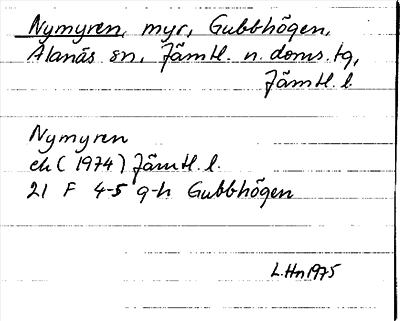 Nymyren, myr, Gubbhögen,
Alanäs sn, Jämtl. n. doms. tg,
Jämtl. l.
Nymyren
ek (1974) Jämtl. l.
21 F 4-5 g-h Gubbhögen
L. Hn 1975